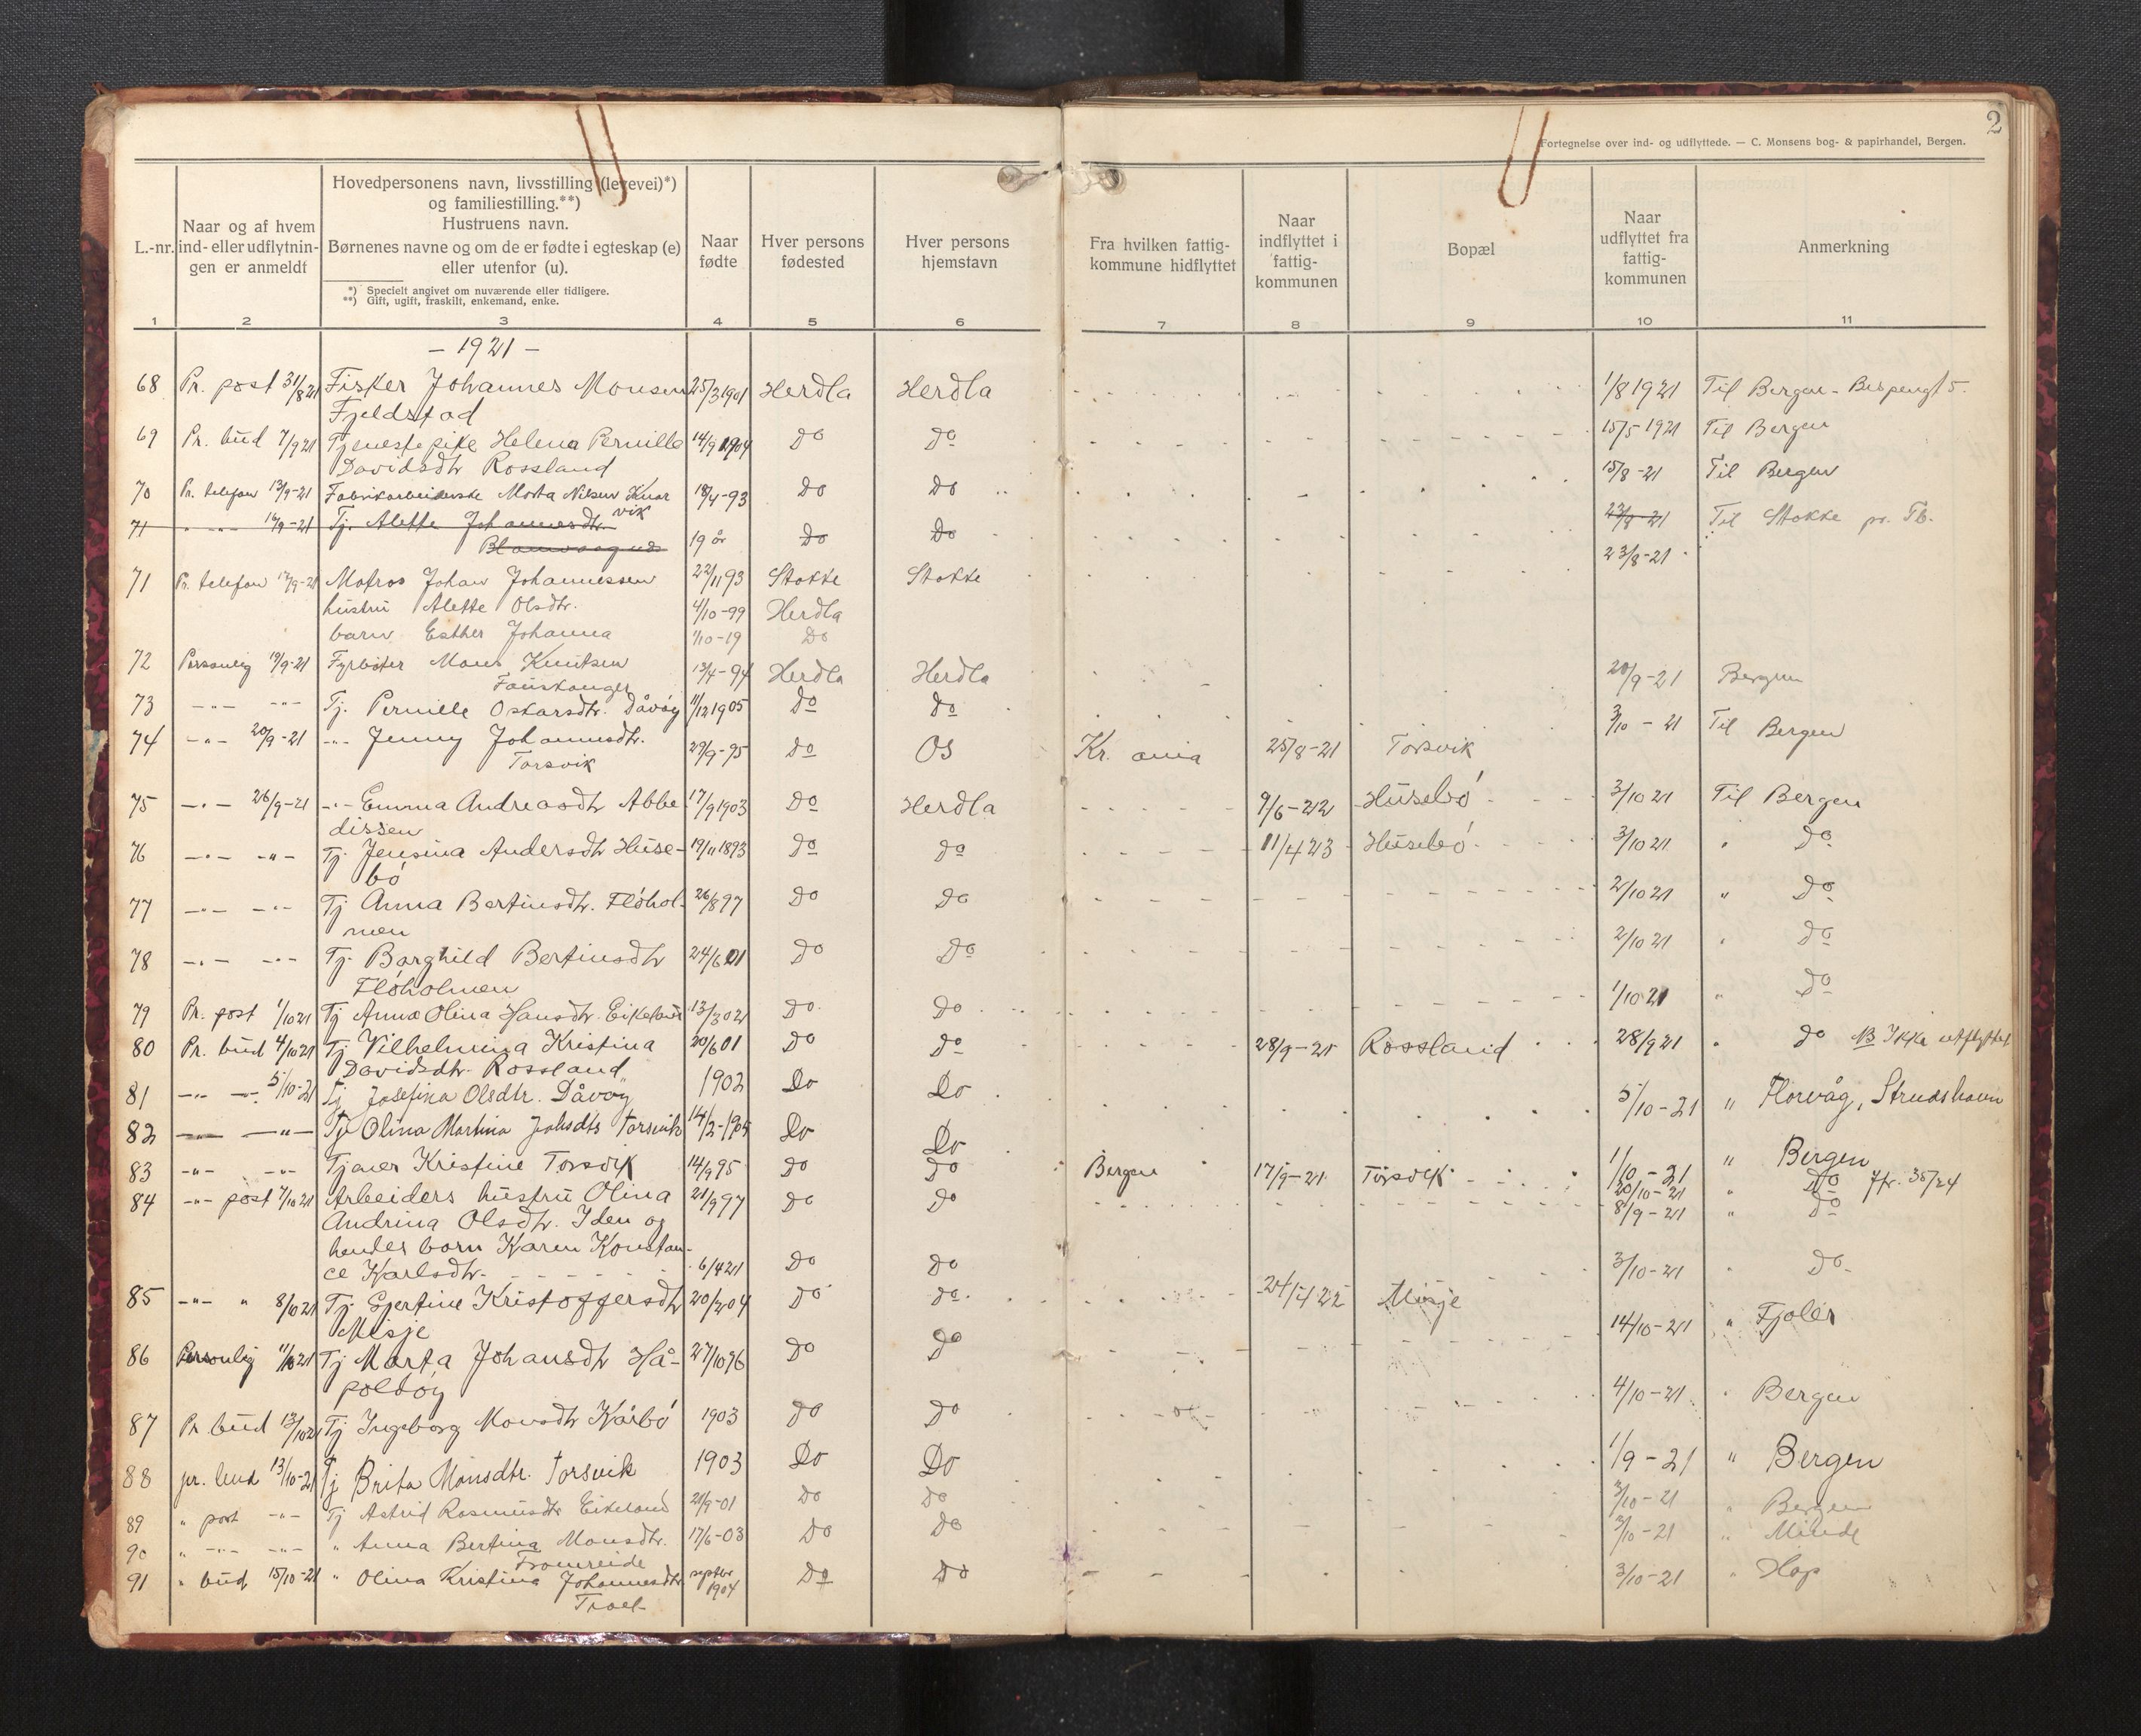 2
Fortegnelse over ind- og udflyttede. — C. Monsens bog- & papirhandel, Bergen.
L.-nr.
Naar og af hvem
ind- eller udflytnin-
gen er anmeldt
Hovedpersonens navn, livsstilling (levevei)*)
og familiestilling.**)
Hustruens navn.
Børnenes navne og om de er fødte i egteskap (e)
eller utenfor (u).
*) Specielt angivet om nuværende eller tidligere.
**) Gift, ugift, fraskilt, enkemand, enke.
Naar
fødte
Hver persons
fødested
Hver persons
hjemstavn
Fra hvilken fattig-
kommune hidflyttet
Naar
indflyttet i
fattig-
kommunen
Bopæl
Naar
udflyttet fra
fattig-
kommunen
Anmerkning
1 2 3 4 5 6 7 8 9 10 11
- 1921 -
68 Pr. post 31/8 21 Fisker Johannes Monsen 25/3 1901 Herdla Herdla 1/8 1921 Til Bergen
Fjeldstad
69 Pr. bud 7/9 21 Tjenestepike Helena Pernille 14/9 1904 Do Do 15/5 1921 Til Bergen
Davidsdtr Rossland
70 Pr. telefon 13/9-21 Fabrikarbeiderske Marta Nilsen Knar 18/4-93 Do Do 15/8-21 Til Bergen
vik
71 " -"- 16/9-21 Tj. Alette Johannesdtr. 19 år Do Do 23/8-21 Til Stokke pr. Tb.
71 Pr. telefon 17/9-21 Matros Johan Johannessen 22/11 93 Stokke Stokke 23/8-21
hustru Alette Olsdtr. 4/10-99 Herdla
barn Esther Johanna 1/10-19 Do
72 Personlig 19/9-21 Fyrbøter Mons Knutsen 13/4-94 Herdla Herdla 20/9-21 Bergen
Fauskanger
73 -"- -"- Tj. Pernille Oskarsdtr. Dåvøy 11/12 1905 Do Do 3/10-21 Til Bergen
74 -"- 20/9-21 -"- Jenny Johannesdtr. 29/9-95 Do Os Kr. ania 25/8-21 Torsvik
Torsvik
75 -"- 26/9-21 -"- Emma Andreasdtr Abbe 17/9 1903 Do Herdla 9/6-22 Husebø 3/10 21 Til Bergen
dissen
76 -"- -"- Tj. Jensina Andersdtr Huse- 19/11 1893 Do Do 11/4 23 Husebø 3/10 21 " Do
bø
77 -"- -"- Tj Anna Bertinsdtr. Fløhol- 26/8 97 Do Do 2/10 21 " Do
men
78 -"- -"- Tj. Borghild Bertinsdtr 24/6 01 Do Do 2/10 21 " Do
Fløholmen
79 Pr. post 1/10 21 Tj Anna Olina Hansdtr. Eikeland 13/3 02 Do Do 1/10 21 " Do
80 Pr. bud 4/10 21 Tj Vilhelmina Kristina 20/6 01 Do Do 28/9-21 Rossland 28/9 21 " do NB Ikke utflyttet
Davidsdtr. Rossland
81 -"- -"- 5/10-21 Tj Josefina Olsdtr. Dåvøy 1902 Do Do 5/10-21 " Florvåg, Strudshavn
82 -"- -"- Tj Olina Martina Johsdtr Torsvik 14/2-1905 Do Do 1/10-21 " Bergen
83 -"- -"- Tjener Kristine Torsvik 14/9 95 Do Do Bergen 17/9-21 Torsvik 20/10-21 " Do Jfr. 35/24
84 -"- post 7/10 21 Arbeiders hustru Olina 21/9 97 Do Do 8/9-21 " Do
Andrina Olsdtr. Iden og
hendes barn Karen Konstan-
ce Karlsdtr. 6/4 21 Do Do
85 -"- " 8/10 21 Tj. Gjertine Kristoffersdtr 20/2 04 Do do 24/4 22 Misje 3/10-21 " Do
Misje
86 Personlig 11/10 21 Tj Marta Johansdtr Hå- 27/10 96 Do Do 14/10-21 " Fjøler
poldøy
87 Pr bud 13/10 21 Tj Ingeborg Monsdtr Kårbø 1903 Do Do 4/10-21 " Bergen
88 pr. bud 13/10-21 Tj Brita Monsdtr. Torsvik 1903 Do Do 1/9-21 " Bergen
89 " post -"- Tj Astrid Rasmusdtr Eikeland 21/9-01 Do Do 3/10-21 " Bergen
90 " -"- -"- " Anna Bertina Monsdtr. 17/6-03 Do Do 3/10-21 " Minde
Fromreide
91 " bud 15/10-21 " Olina Kristina Johannesdtr. septbr 1904 Do Do 3/10-21 " Hop